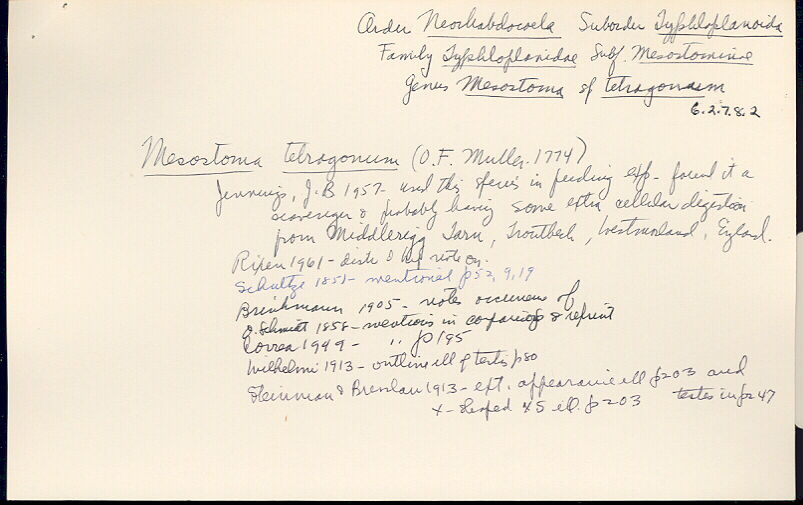 Order Neorhabdocoela Suborder Typhloplanoida
Family Typhloplanidae Subf. Mesostominae
Genus Mesostoma sp tetragonum
6.2.7.8.2
Mesostoma tetragonum (O.F. Muller. 1774)
Jennings, J.B 1957- used this species in feeding exp- found it a
scavenger & probably having some extra cellular digestion
from Middlerigg Tarn, Troutbeck, Westmorland, England.
1961- distr note on.
Schultze 1851- mentioned p52, 9, 19
Brinkmann 1905- notes occurrence of
O. Schmidt 1858- mentions in comparing &
Correa 1949- " p195
Wilhelmi 1913- outline ill of testis p80
& Bresslau 1913- ext. appearance ill p203 and
x- shaped ill. p203 testes in p247